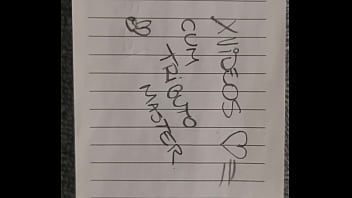 XVIDEOS ♡
CUM
TRIBUTO
MASTER